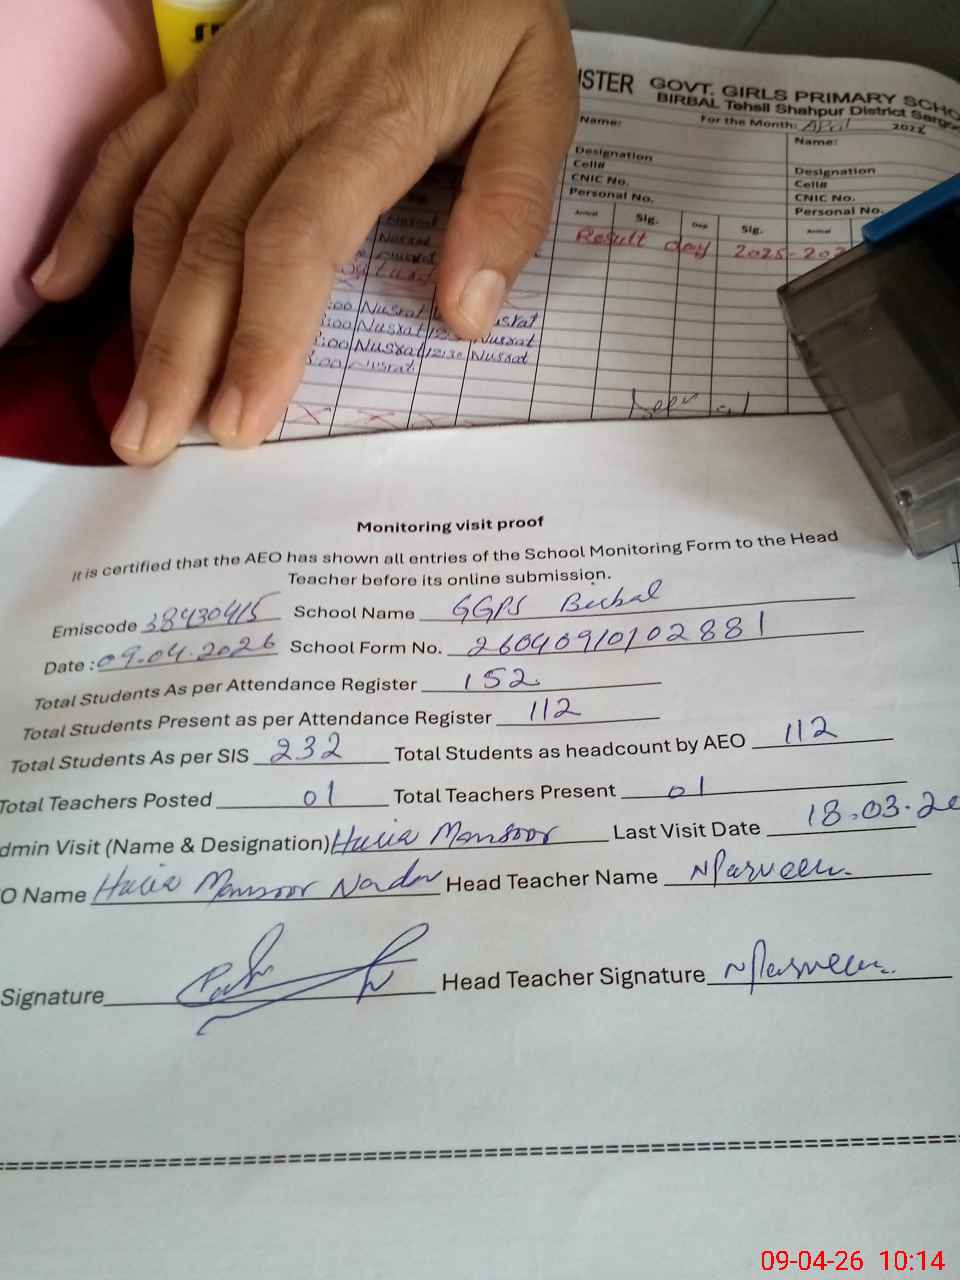 ISTER GOVT. GIRLS PRIMARY SCHO
BIRBAL Tehsil Shahpur District Sargo
Name: For the Month: April 202
Name:
Designation
Cell#
CNIC No.
Personal No.
Designation
Cell#
CNIC No.
Personal No.
Arrival Sig. Dep Sig. Arrival
Result day 2025-202
:00 Nusrat usrat
:00 Nusrat Nusrat
8:00 Nusrat 12:30 Nusrat
8:00 Nusrat
Monitoring visit proof
It is certified that the AEO has shown all entries of the School Monitoring Form to the Head
Teacher before its online submission.
Emiscode 38430415 School Name GGPS Birbal
Date : 09.04.2026 School Form No. 26040910102881
Total Students As per Attendance Register 152
Total Students Present as per Attendance Register 112
Total Students As per SIS 232 Total Students as headcount by AEO 112
Total Teachers Posted 01 Total Teachers Present 01
dmin Visit (Name & Designation) Mansoor Last Visit Date 18.03.20
O Name Mansoor Head Teacher Name NParveen
Signature Head Teacher Signature NParveen
09-04-26 10:14